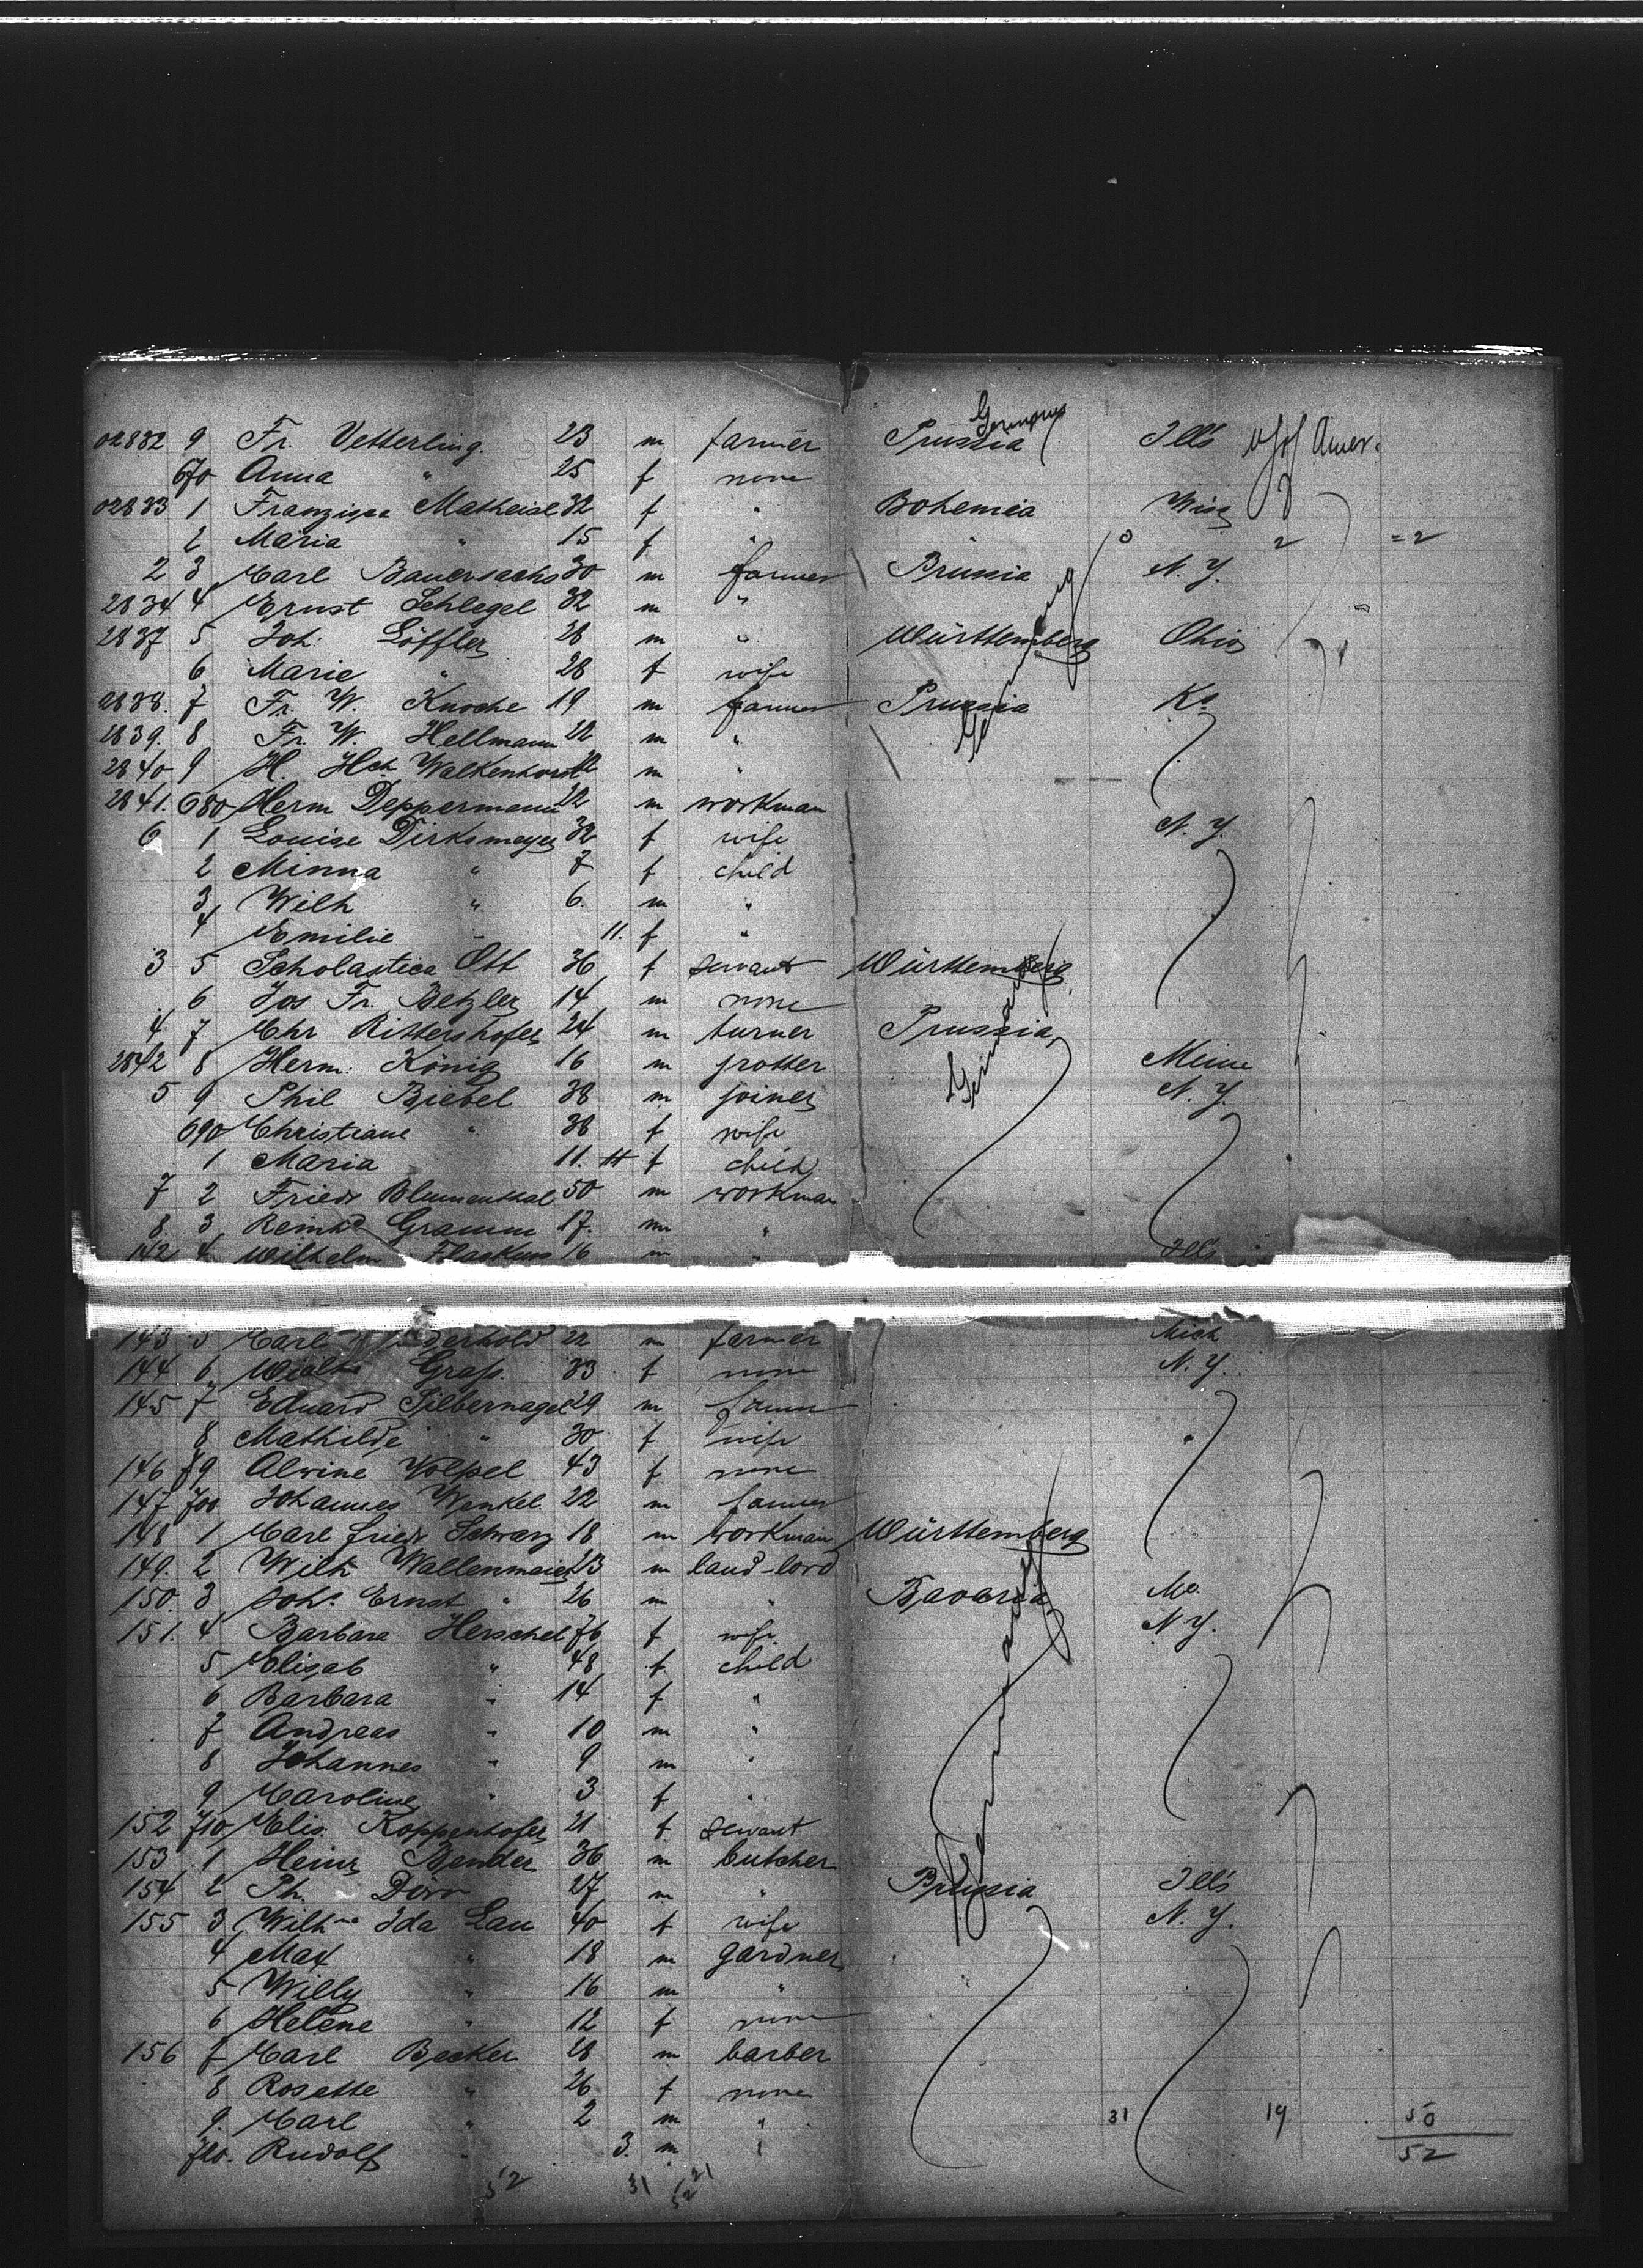 02832 9 Fr. Vetterling. 23 m farmer Prussia Germany Ills U.S. of Amer.
670 Anna " 25 f none
02833 1 Franziska Matheisl 32 f " Bohemia Wisc
2 Maria " 15 f " 0 2 = 2
2 3 Carl Bauersachs 30 m farmer Prussia N. Y.
2834 4 Ernst Schlegel 32 m "
2837 5 Joh. Löffler 28 m " Württemberg Germany Ohio
6 Marie " 28 f wife
2838. 7 Fr. W. Knoche 19 m farmer Prussia Ks.
2839. 8 Fr. W. Hellmann 22 m "
2840 9 H. Hch. Walkenhorst m "
2841. 680 Herm Deppermann 22 m workman
6 1 Louise Dirksmeyer 32 f wife N. Y.
2 Minna " 7 f child
3 Wilh " 6. m "
4 Emilie " 11. f "
3 5 Scholastica Ott 36 f servant Württemberg
6 Jos Fr. Betzler 14 m none
4 7 Chr Rittershofer 24 m turner Prussia Germany
2842 8 Herm. König 16 m potter
5 9 Phil Biebel 38 m joiner N. Y.
690 Christiane " 38 f wife
1 Maria 11. f child
7 2 Friedr Blumenthal 50 m workman
8. 3 Reinhd Gramm 17. m "
142 4 Wilhelm 16 m " Ills
143 5 Carl 22 m farmer Mich
144 6 Grass. 33 f none N. Y.
145 7 Eduard Silbernagel 29 m farmer
8 Mathilde " 30 f wife
146 9 Alwine Völpel 43 f none
147 700 Johannes Wenkel 22 m farmer
148 1 Carl Friedr Schwarz 18 m workman Württemberg
149. 2 Wilh Wallenmaier 23 m land-lord
150. 3 Johs Ernst " 26 m " Bavaria Mo.
151. 4 Barbara Herschel 76 f wife Germany N. Y.
5 Elisab " 48 f child
6 Barbara " 14 f "
7 Andreas " 10 m "
8 Johannes " 9 m "
9 Caroline " 3 f "
152 710 Elis. Koppenhofer 21 f servant
153 1 Heinr Bender 36 m butcher
154 2 Ph. Dörr 27 m " Prussia Ills
155 3 Wilhne Ida Lau 40 f wife N. Y.
4 Max " 18 m gardner
5 Willy " 16 m "
6 Helene " 12 f none
156 7 Carl Becker 28 m barber
8 Rosette " 26 f none
9. Carl " 2 m " 31 19 50
720. Rudolf " 3. m " 52
52 31 21
52